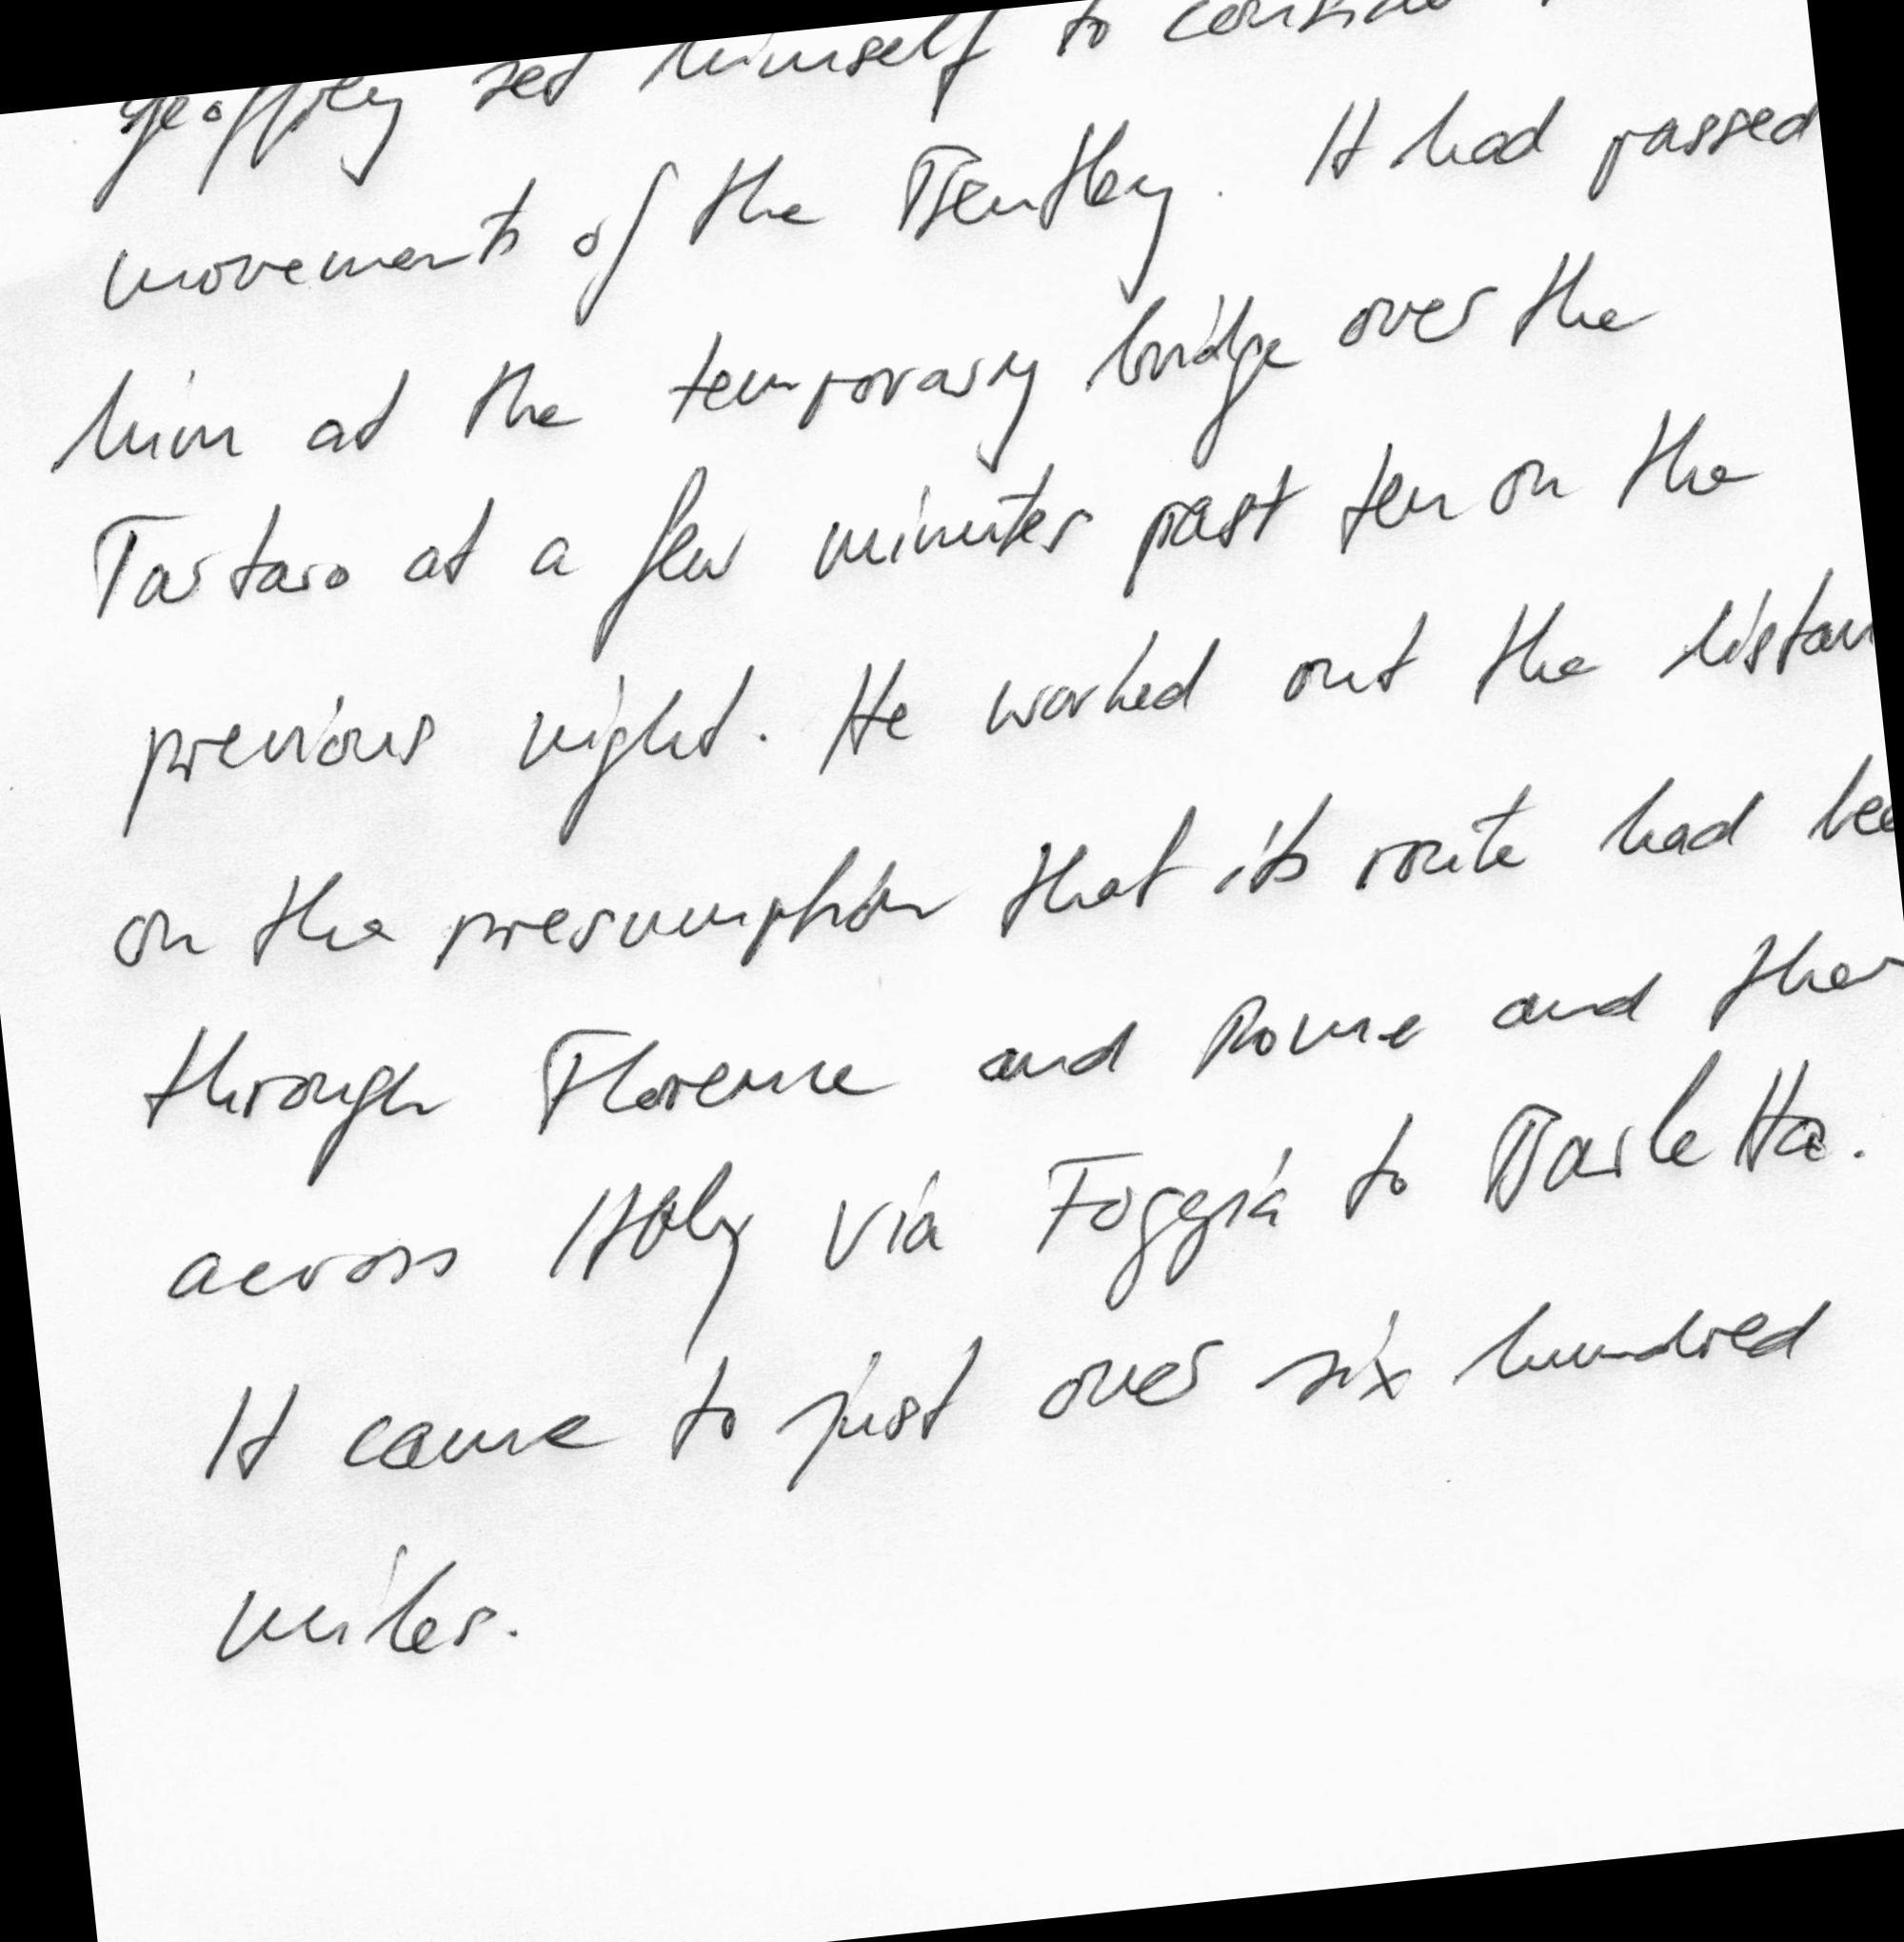 Geoffrey set himself to consider
movements of the Bentley. It had passed
him at the temporary bridge over the
Tartaro at a few minutes past ten on the
previous night. He worked out the distan
on the presumption that its route had bee
through Florence and Rome and then
across Italy via Foggia to Barletta.
It came to just over six hundred
miles.